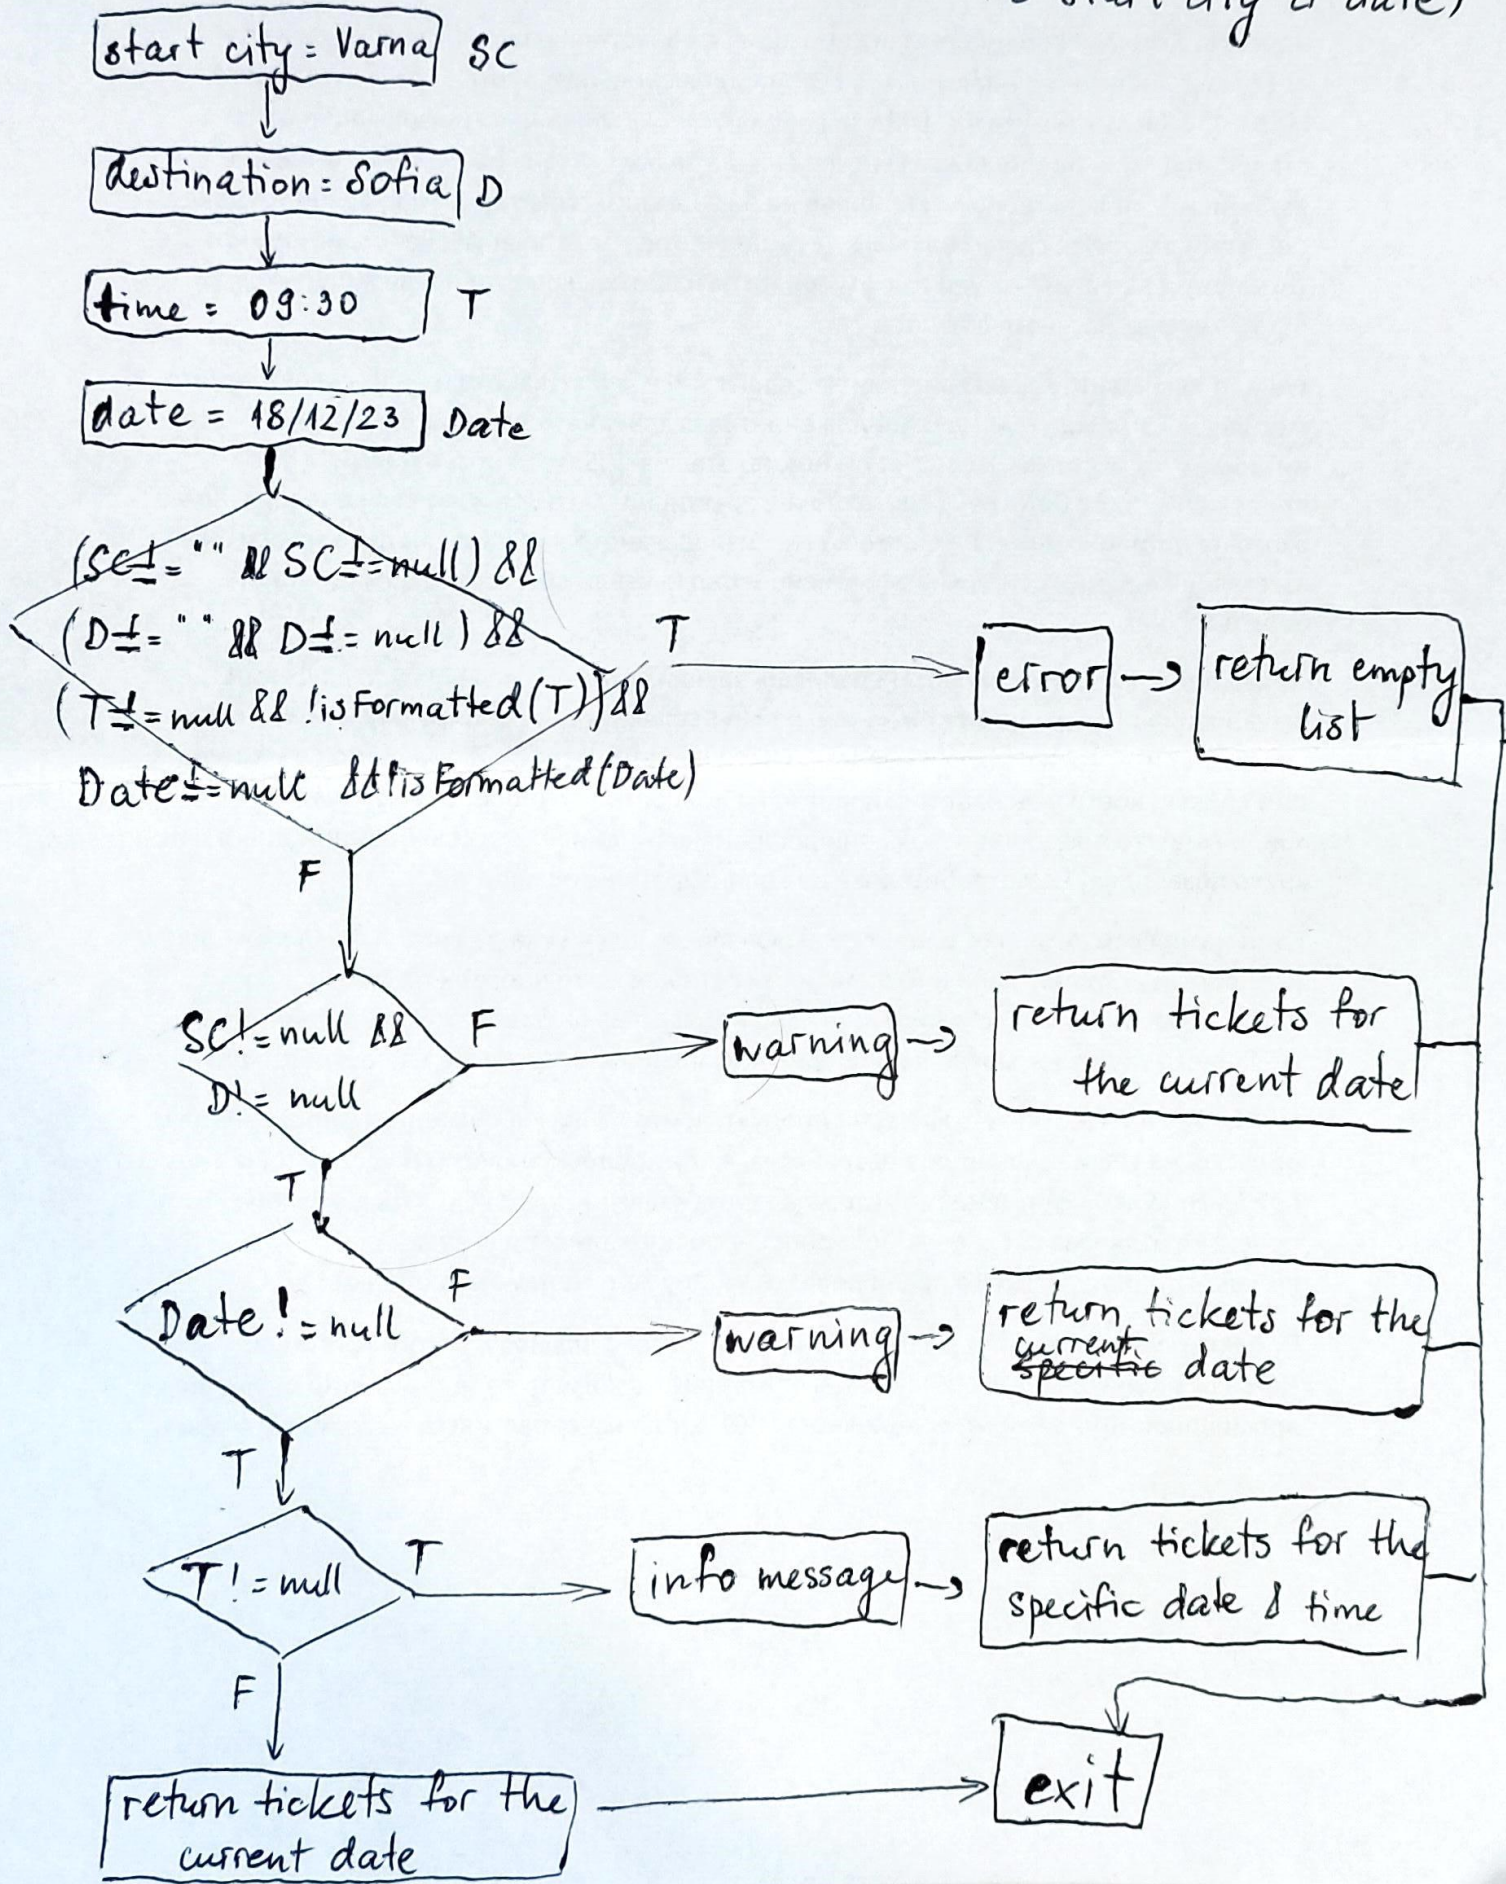 start city & date)
start city = Varna SC
destination = Sofia D
time = 09:30 T
date = 18/12/23 Date
(SC != "" && SC != null) &&
(D != "" && D != null) && T
(T != null && !isFormatted(T)) &&
Date != null && !isFormatted(Date)
error
return empty
list
F
SC != null && F
D != null
warning
return tickets for
the current date
T
Date != null F
warning
return tickets for the
current
specific date
T
T != null T
info message
return tickets for the
specific date & time
F
return tickets for the
current date
exit